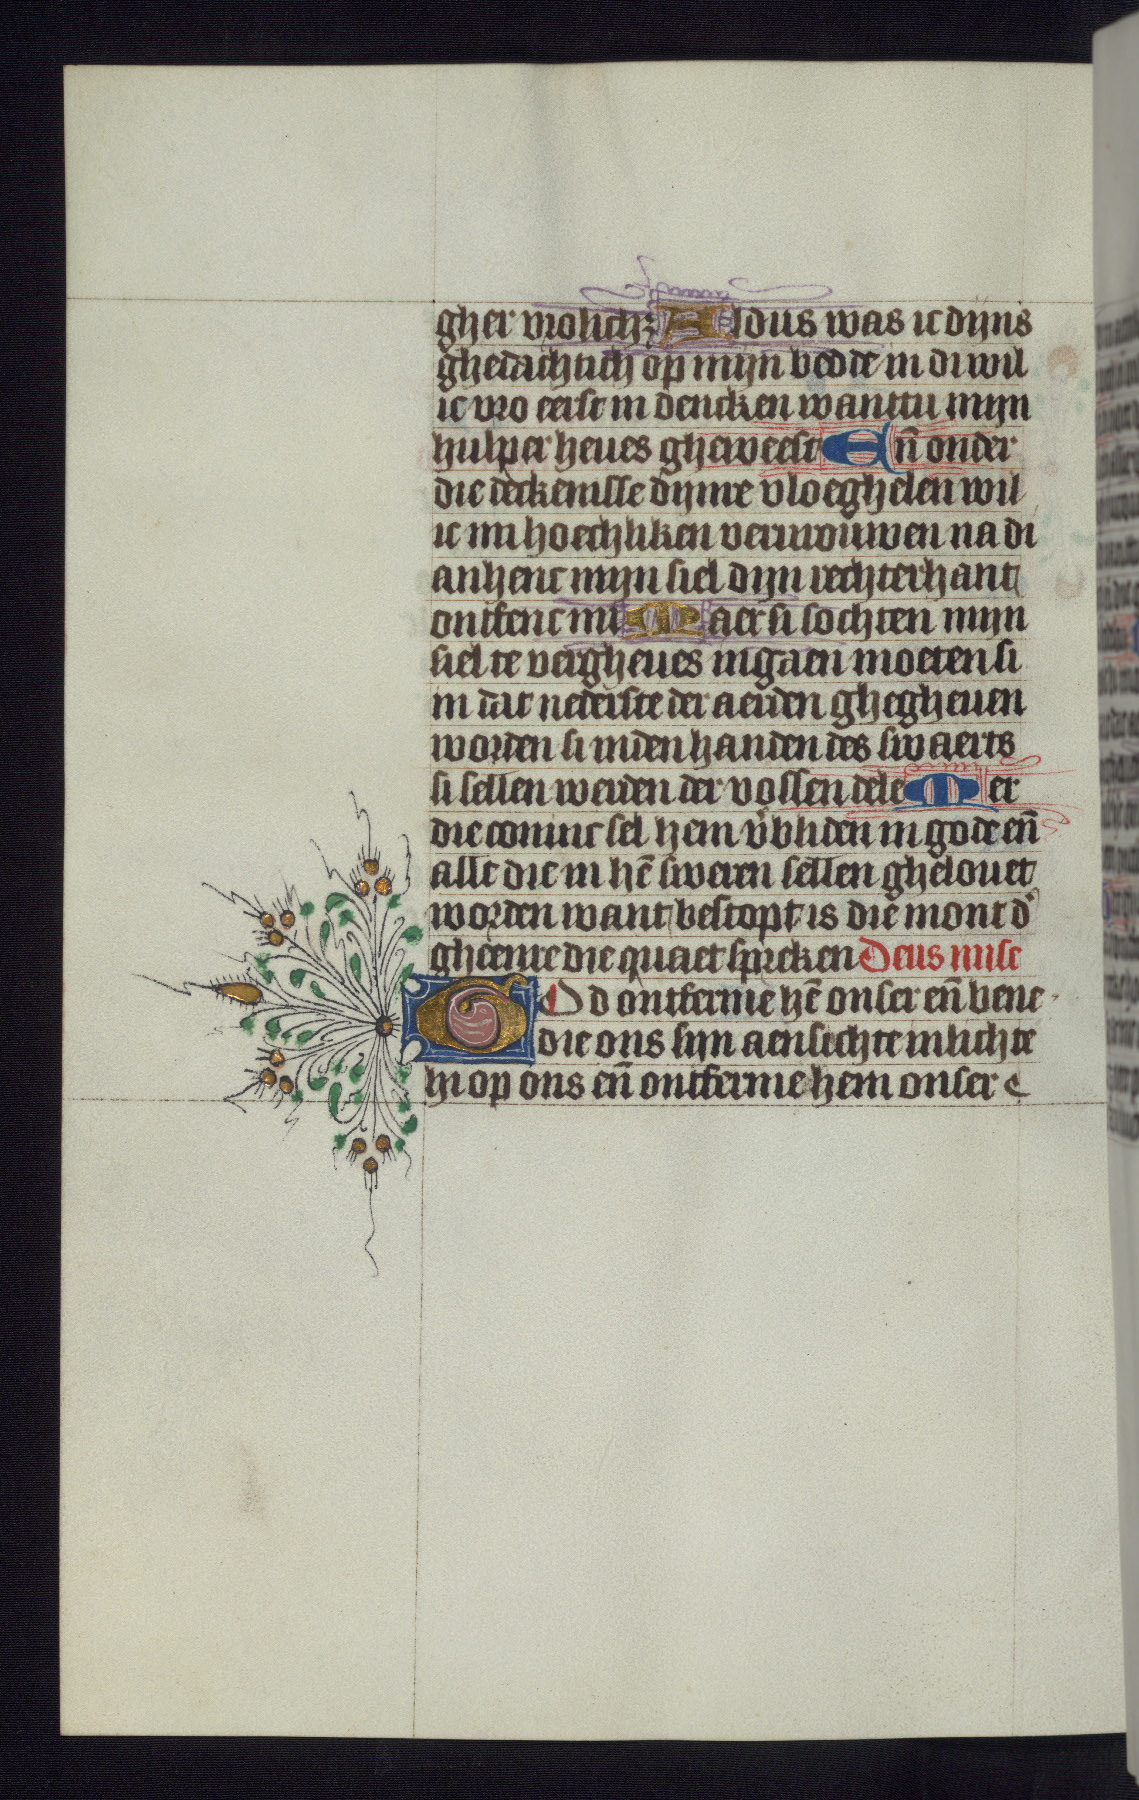 gher vrolich; Aldus was ic dijns
ghedachtich op mijn bedde in di wil
ic vro eerst in dencken wanttu mijn
hulper heues gheweest En̄ onder
die deckenisse dijnre vloeghelen wil
ic mi hoechliken vervrouwen na di
anhenc mijn siel dijn rechterhant
ontfenc mi Maer si sochten mijn
siel te vergheues ingaen moeten si
in dat nederste der aerden ghegheuen
worden si inden handen des swaerts
si sellen werden der vossen dele Mer
die coninc sel hem v̄bliden in gode en̄
alle die in hē sweren sellen ghelouet
worden want bestopt is die mont d'
gheenre die quaet spreken Deus mise
God ontferme hē onser en̄ bene
die ons sijn aensichte inlichte
hi op ons en̄ ontferme hem onser